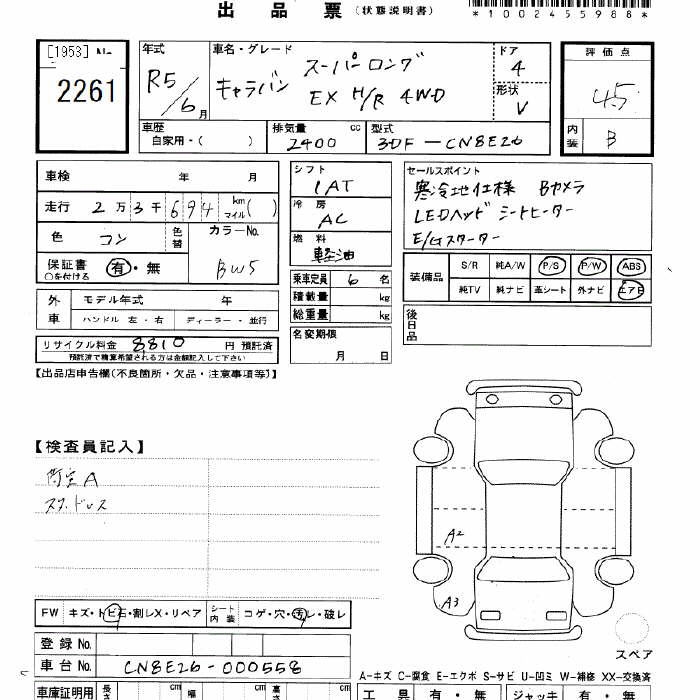 出品票 (状態説明書)
*1002455988*
[1953] No.
2261
年式
R5/6月
車名・グレード
スーパーロング
キャラバン
EX H/R 4WD
ドア
4
形状
V
評価点
4.5
内装
B
車歴
自家用・( )
排気量 cc
2400
型式
3DF-CN8E26
車検 年 月
走行 2万3千694 km マイル( )
色 コン
色替
カラーNo.
BW5
保証書 ○を付ける 有・無
シフト
1AT
冷房
AC
燃料
軽油
乗車定員 6名
積載量 kg
総重量 kg
名変期限
月 日
セールスポイント
寒冷地仕様 Bカメラ
LEDヘッド シートヒーター
E/Gスターター
装備品
S/R 純A/W P/S P/W ABS
純TV 純ナビ 革シート 外ナビ エアB
外車
モデル年式 年
ハンドル 左・右 ディーラー・並行
リサイクル料金 8810 円 預託済
預託済で精算希望される方は金額記入して下さい
後日品
【出品店申告欄(不良箇所・欠品・注意事項等)】
【検査員記入】
荷室A
スタッドレス
A2
A3
スペア
FW キズ・トビ石・割レX・リペア
シート内装 コゲ・穴・汚レ・破レ
登録No.
車台No. CN8E26-000558
A-キズ C-腐食 E-エクボ S-サビ U-凹ミ W-補修 XX-交換済
車庫証明用 長さ cm 幅 cm 高さ cm
工具 有・無 ジャッキ 有・無